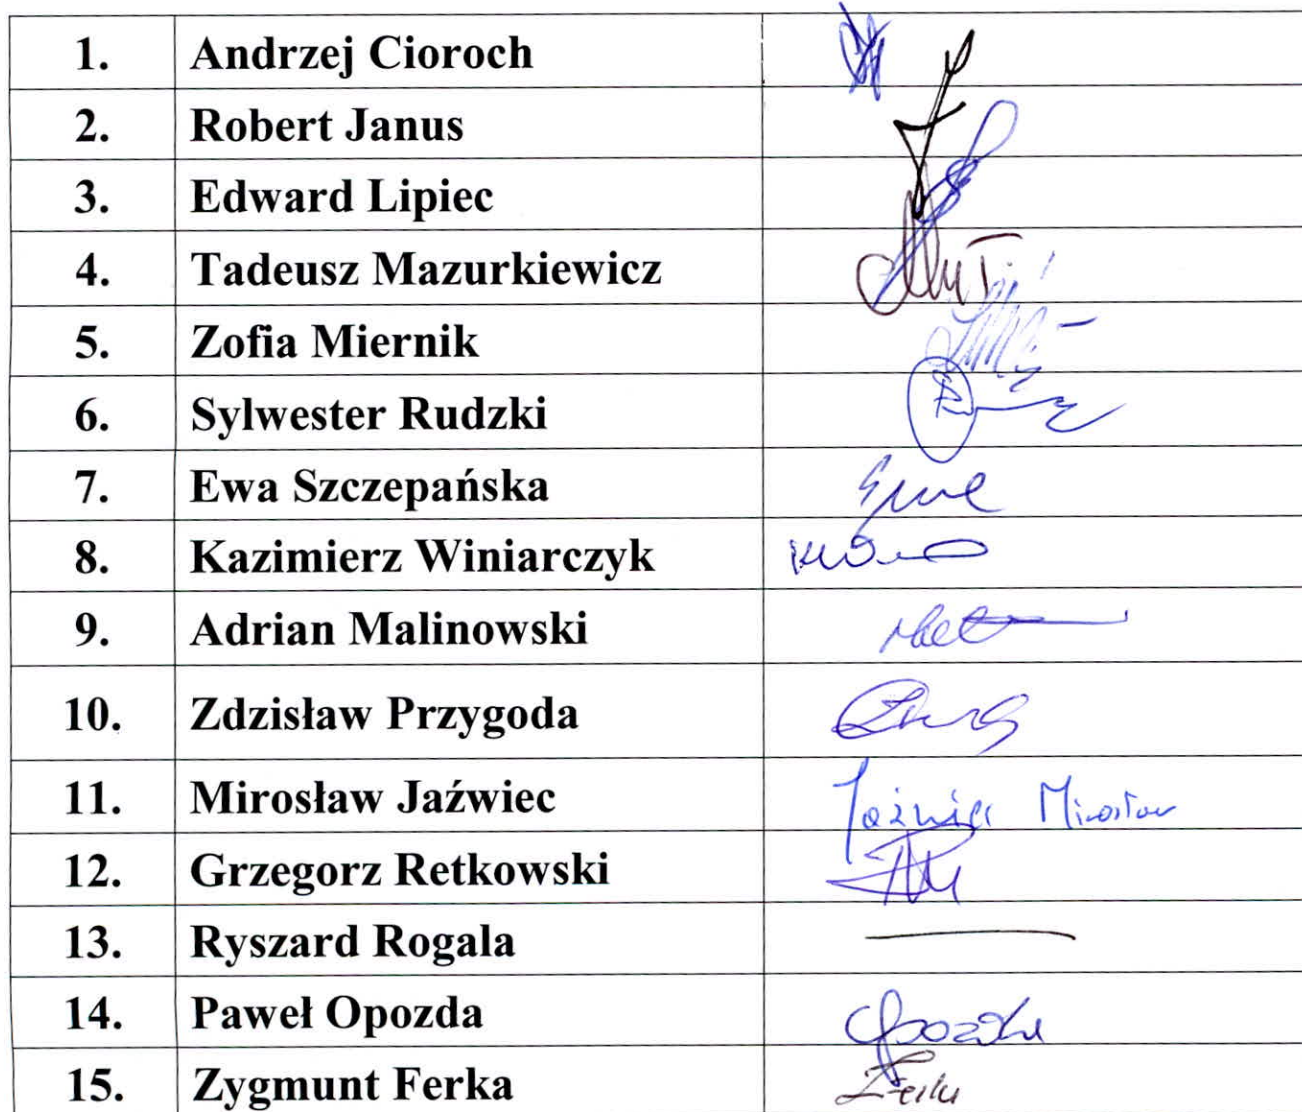 1. Andrzej Cioroch
2. Robert Janus
3. Edward Lipiec
4. Tadeusz Mazurkiewicz
5. Zofia Miernik
6. Sylwester Rudzki
7. Ewa Szczepańska
8. Kazimierz Winiarczyk
9. Adrian Malinowski
10. Zdzisław Przygoda
11. Mirosław Jaźwiec Jaźwiec Mirosław
12. Grzegorz Retkowski
13. Ryszard Rogala
14. Paweł Opozda
15. Zygmunt Ferka